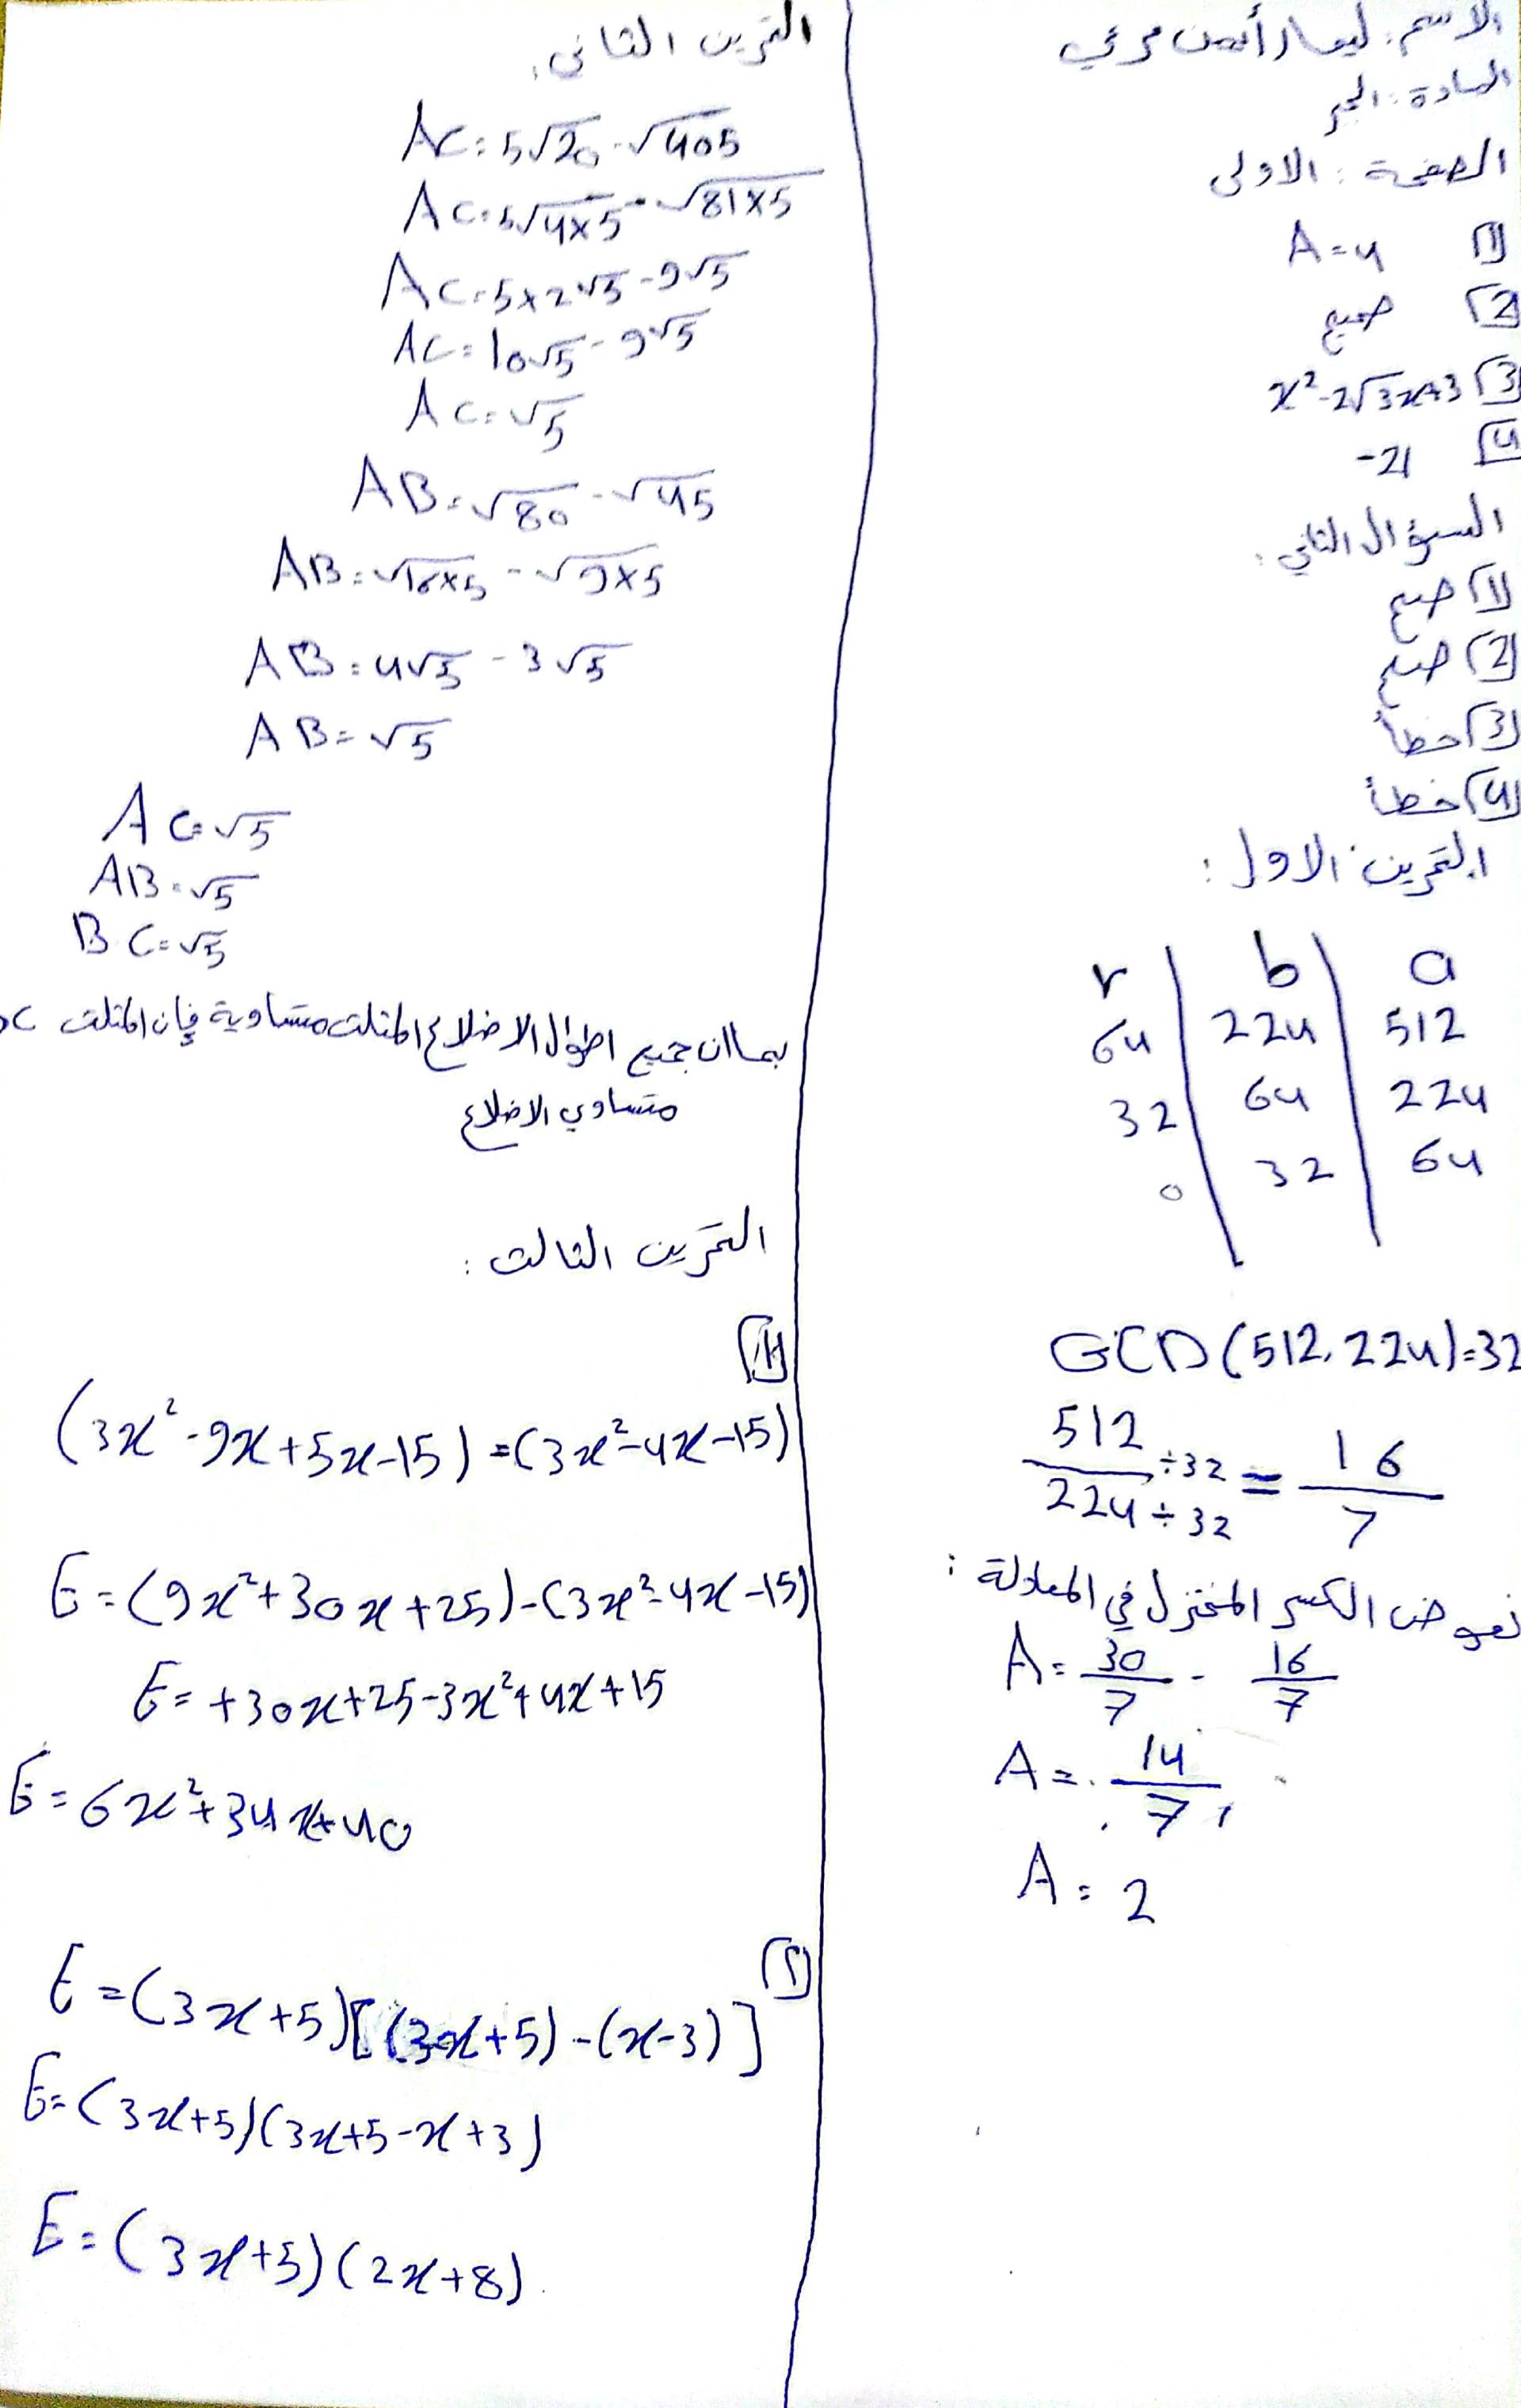 الاسم: ليمار أيمن مرعي
المادة: الجبر
الصفحة: الاولى
1) A=4
2) صحيح
3) x²-2√3x+3
4) -21
السؤال الثاني:
1) صح
2) صح
3) خطأ
4) خطأ
التمرين الاول:
a | b | r
512 | 224 | 64
224 | 64 | 32
64 | 32 | 0
GCD(512,224)=32
512÷32 / 224÷32 = 16/7
نعوض الكسر المختزل في المعادلة:
A = 30/7 - 16/7
A = 14/7
A = 2
التمرين الثاني:
AC=5√20-√405
AC=5√4×5-√81×5
AC=5×2√5-9√5
AC=10√5-9√5
AC=√5
AB=√80-√45
AB=√16×5-√9×5
AB=4√5-3√5
AB=√5
AC=√5
AB=√5
BC=√5
بما ان جميع اطوال الاضلاع المثلث متساوية فإن المثلث
متساوي الاضلاع
التمرين الثالث:
1)
(3x²-9x+5x-15)=(3x²-4x-15)
E=(9x²+30x+25)-(3x²-4x-15)
E=+30x+25-3x²+4x+15
E=6x²+34x+40
2)
E=(3x+5)[(3x+5)-(x-3)]
E=(3x+5)(3x+5-x+3)
E=(3x+5)(2x+8)